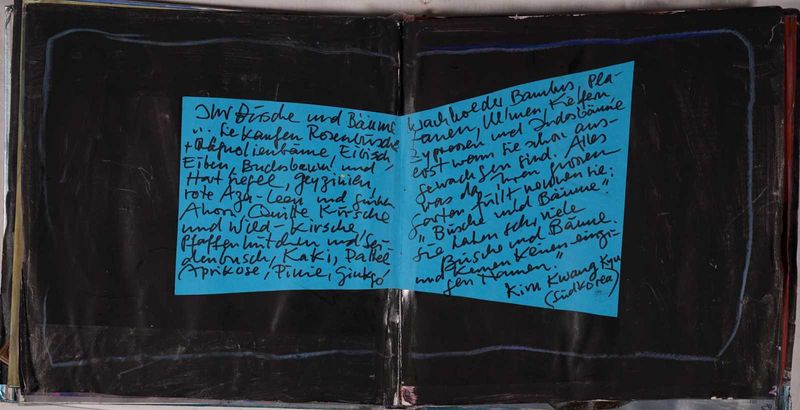 Ihr Büsche und Bäume
"... Sie kaufen Rosenbüsche
+ Magnolienbäume, Eibisch
Eiben, Buchsbaum und
Hartriegel,
rote Aza-leen und
Ahorn Quitte Kirsche
und Wild-Kirsche
Pfaffenhütchen und Sei-
denbusch, Kaki, Dattel
Aprikose, Pinie, Ginkgo
Wacholder Bambus Pla-
tanen, Ulmen, Kiefern
Zypressen und Judasbäume
erst wenn sie schon aus-
gewachsen sind. Alles
was da ihren grossen
Garten füllt nennen sie:
"Büsche und Bäume".
Sie haben sehr viele
Büsche und Bäume.
und kennen keinen einzi-
gen Namen."
Kim Kwang Kyu
(Südkorea)